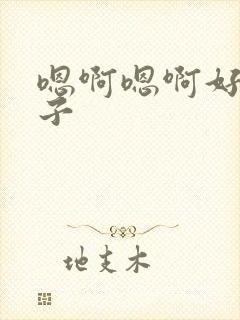 嗯啊嗯啊好
子
地支木